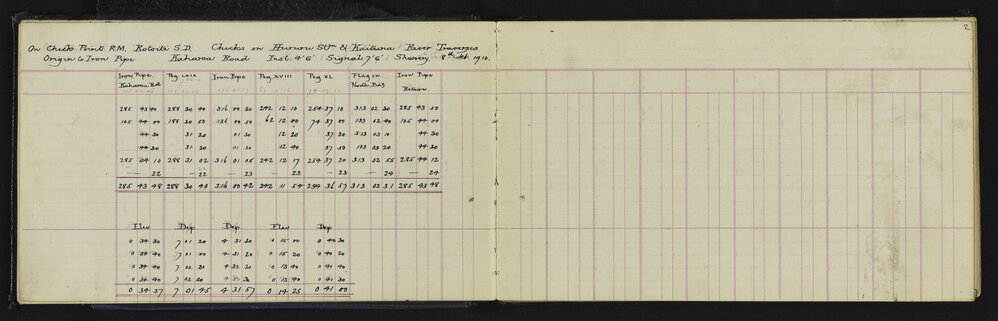 2
On Check Point R.M. Rotoiti S.D. Checks on Hururu Stm & Kaituna River Traverses
Origin to Iron Pipe Kaharoa Road Inst. 4'6" Signal 7'6" Showery 8th Oct. 1910.
Iron Pipe Peg LXIX Iron Pipe Peg XVIII Peg XL Flag on Iron Pipe
Kaharoa Rd North Bdy Return
285 43 40 288 30 40 316 00 30 242 12 10 254 37 10 313 02 30 285 43 50
105 44 00 108 30 50 136 00 50 62 12 00 74 37 00 133 02 40 105 44 00
44 30 31 20 01 30 12 20 37 20 313 03 10 44 30
44 30 31 20 01 30 12 40 37 50 133 03 20 44 30
285 44 10 288 31 02 316 01 05 242 12 17 254 37 20 313 02 55 285 44 12
— — 22 — 22 — — 23 — 23 — 23 — 24 — — 24
285 43 48 288 30 40 316 00 42 242 11 54 254 36 57 313 02 31 285 43 48
Elev Dip Dip Elev Dip
0 34 30 7 01 20 4 31 20 0 15 00 0 40 30
0 34 40 7 01 40 4 31 20 0 15 20 0 40 20
0 34 40 7 02 20 4 32 30 0 13 40 0 41 40
0 34 40 7 02 20 4 32 0 13 40 0 41 30
0 34 37 7 01 45 4 31 57 0 14 25 0 41 00